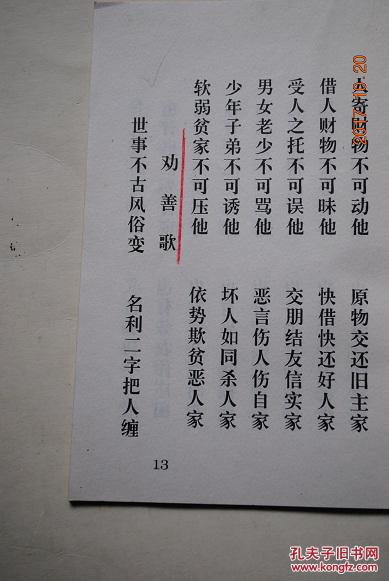 人寄财物不可动他 原物交还旧主家
借人财物不可昧他 快借快还好人家
受人之托不可误他 交朋结友信实家
男女老少不可骂他 恶言伤人伤自家
少年子弟不可诱他 坏人如同杀人家
软弱贫家不可压他 依势欺贫恶人家
劝善歌
世事不古风俗变 名利二字把人缠
13
孔夫子旧书网
www.kongfz.com